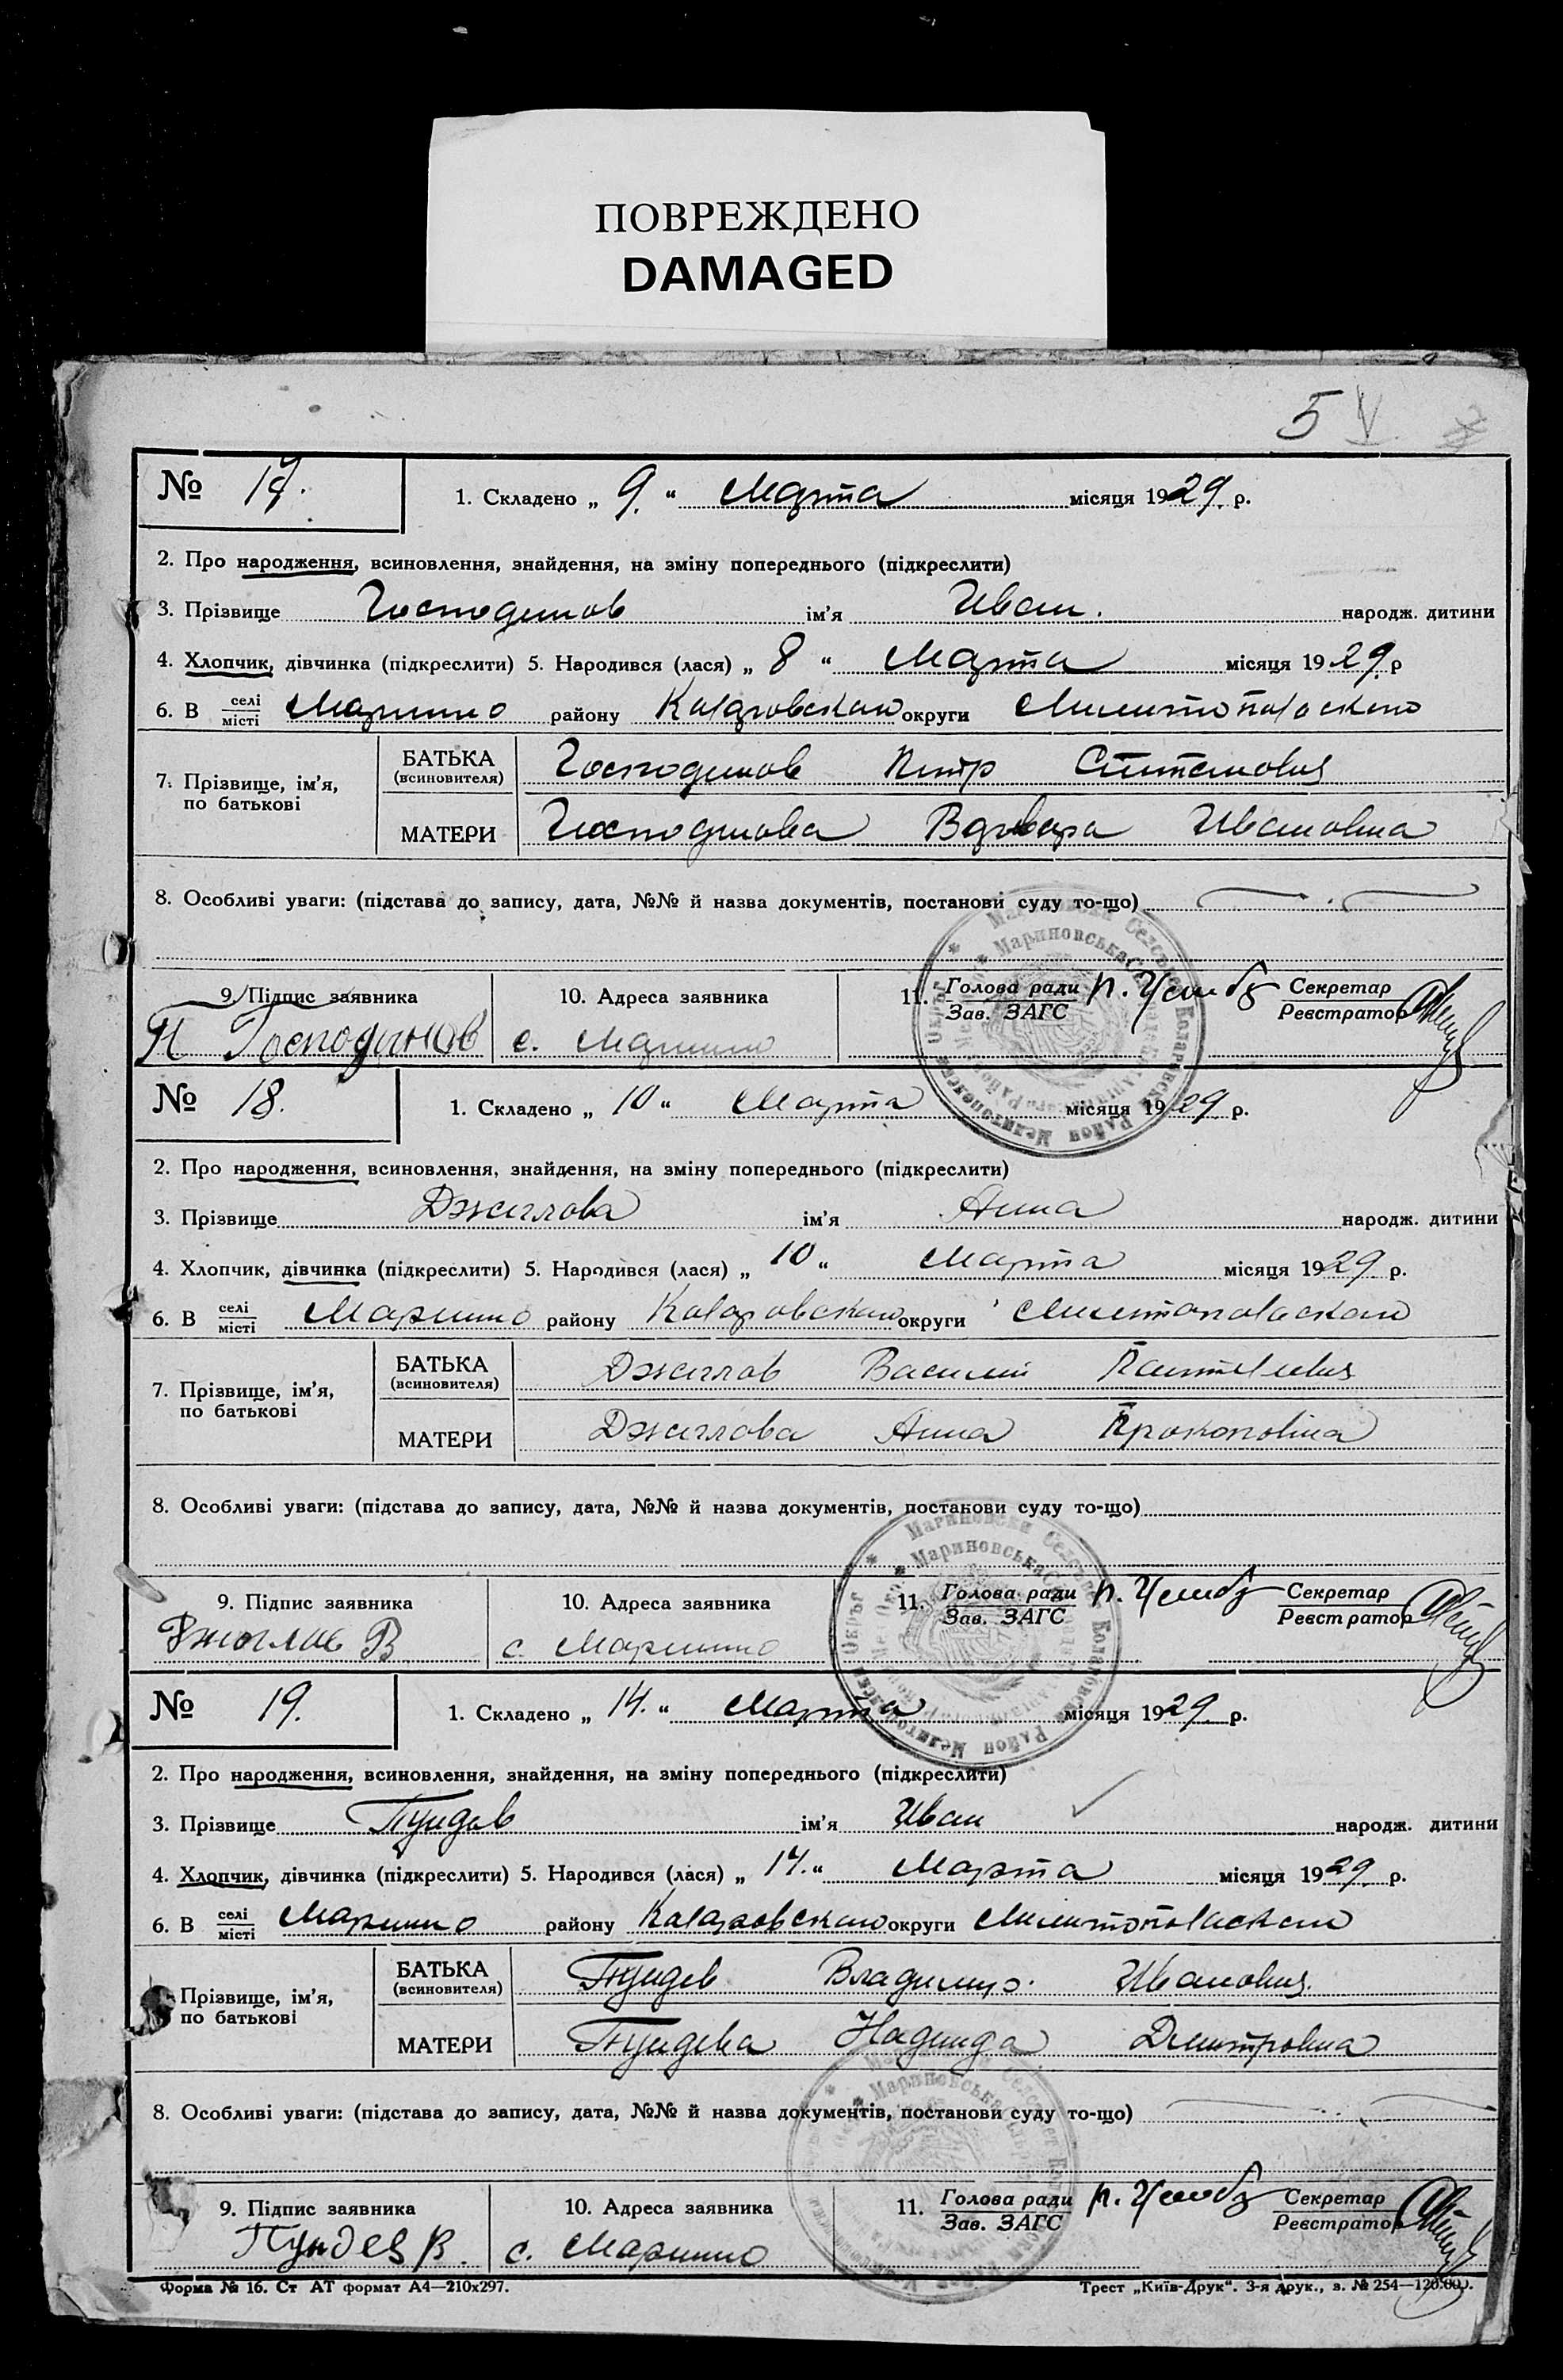 ПОВРЕЖДЕНО
DAMAGED
5 V
№ 17. 1. Складено „ 9. “ Марта місяця 1929. р.
2. Про народження, всиновлення, знайдення, на зміну попереднього (підкреслити)
3. Прізвище Господинов ім'я Иван. народж. дитини
4. Хлопчик, дівчинка (підкреслити) 5. Народився (лася) „ 8 “ Марта місяця 1929. р
6. В селі/місті Марино району Коларовского округи Милитопольского
7. Прізвище, ім'я, по батькові БАТЬКА (всиновителя) Господинов Петр Степанович
МАТЕРИ Господинова Варвара Ивановна
8. Особливі уваги: (підстава до запису, дата, №№ й назва документів, постанови суду то-що)
9. Підпис заявника 10. Адреса заявника 11. Голова ради Зав. ЗАГС Секретар Реєстратор
П Господинов с. Марино
№ 18. 1. Складено „ 10 “ Марта місяця 1929. р.
2. Про народження, всиновлення, знайдення, на зміну попереднього (підкреслити)
3. Прізвище Джеглова ім'я Анна народж. дитини
4. Хлопчик, дівчинка (підкреслити) 5. Народився (лася) „ 10 “ Марта місяця 1929. р.
6. В селі/місті Марино району Коларовского округи Милитопольского
7. Прізвище, ім'я, по батькові БАТЬКА (всиновителя) Джеглов Василий Пантелиевич
МАТЕРИ Джеглова Анна Прокоповна
8. Особливі уваги: (підстава до запису, дата, №№ й назва документів, постанови суду то-що)
9. Підпис заявника 10. Адреса заявника 11. Голова ради Зав. ЗАГС Секретар Реєстратор
В с. Марино
№ 19. 1. Складено „ 14. “ Марта місяця 1929 р.
2. Про народження, всиновлення, знайдення, на зміну попереднього (підкреслити)
3. Прізвище Пундев ім'я Иван народж. дитини
4. Хлопчик, дівчинка (підкреслити) 5. Народився (лася) „ 14. “ Марта місяця 1929. р.
6. В селі/місті Марино району Коларовского округи Милитопольского
Прізвище, ім'я, по батькові БАТЬКА (всиновителя) Пундев Владимир Иванович.
МАТЕРИ Пундева Надежда Дмитровна
8. Особливі уваги: (підстава до запису, дата, №№ й назва документів, постанови суду то-що)
9. Підпис заявника 10. Адреса заявника 11. Голова ради Зав. ЗАГС Секретар Реєстратор
Пундев В. с. Марино
Форма № 16. Ст АТ формат А4—210х297. Трест „Київ-Друк“. 3-я друк., з. № 254—120.000.